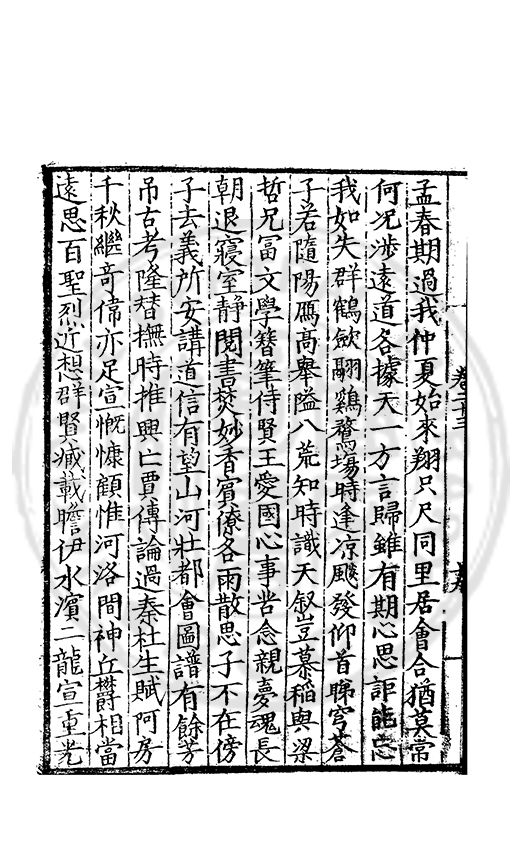 孟春期過我仲夏始來翔只尺同里居會合猶莫常
何况渉遠道各據天一方言歸雖有期心思詎能忘
我如失群鶴歛翮鷄鶩塲時逢凉飈發仰首睇穹蒼
子若隨陽鴈髙舉隘八荒知時識天叙豈慕稲與梁
哲兄富文學簪筆侍賢王愛國心事苦念親夢魂長
朝退寢室靜閱書焚妙香賓僚各雨散思子不在傍
子去義所安講道信有望山河壯都會圖譜有餘芳
吊古考隆替撫時推興亡賈傅論過秦杜生賦阿房
千秋繼竒偉亦足宣慨慷顧惟河洛間神丘欝相當
遠思百聖烈近想群賢臧載瞻伊水濵二龍宣重光
卷二十三